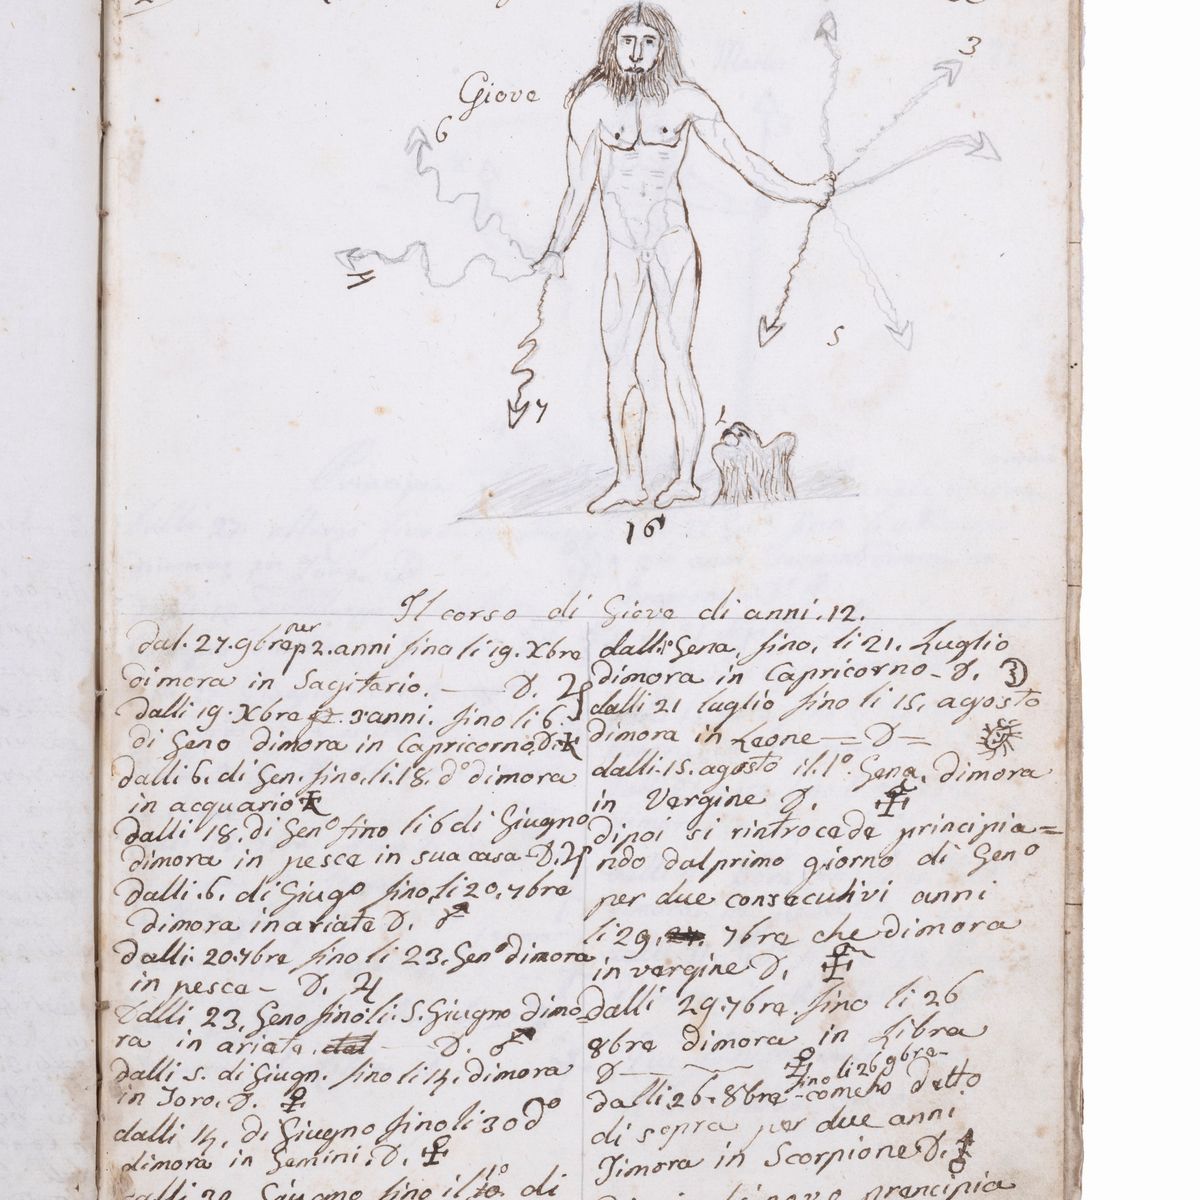 Giove
6
3
4
7
5
1
16
Il corso di Giove di anni.12.
dal.27.9bre per 2.anni fino li 19.Xbre
dimora in Sagitario. — D. ♃
dalli 19.Xbre 3 anni. fino li 6.
di Geno dimora in Capricorno.D.
dalli 6. di Gen. fino.li.18. d° dimora
in acquario
dalli 18. di Gen° fino li 6 di Giugno
dimora in pesce in sua casa D.♃
dalli.6. di Giug° fino li 20.7bre
dimora in ariete D. ♂
dalli.20.7bre fino li 23.Gen° dimora
in pesce — D. ♃
Dalli 23. Geno fino li.5.Giugno dimo=
ra in ariete. dal D. ♂
dalli 5. di Giugn. fino li 14. dimora
in Toro. D. ♀
dalli 14. di Giugno fino li 30 d°
dimora in Gemini.D. ☿
dalli 30 Giugno fino il 10° di
dalli Gena. fino. li 21. Luglio
dimora in Capricorno—D.
dalli 21 luglio fino li 15. agosto
dimora in Leone = D =
dalli.15.agosto il.1°. Gena. dimora
in Vergine D. ☿
dipoi si rintrocede principia=
ndo dal primo giorno di Gen°
per due consecutivi anni
li 29. 7bre che dimora
in vergine D. ☿
dalli 29.7bre. fino li 26
8bre dimora in Libra
D — ♀ fino li 26 9bre-
dalli.26.8bre-come ho detto
di sopra per due anni
Dimora in Scorpione D. ♂
principia